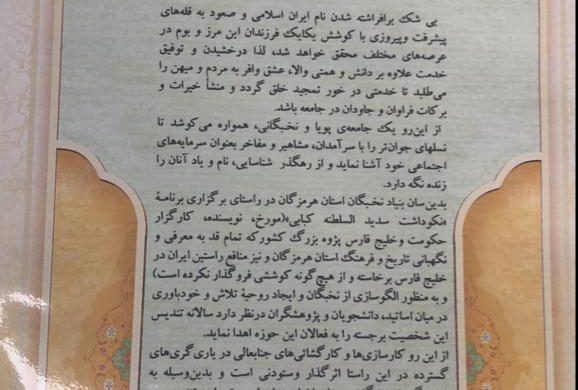 بی شک برافراشته شدن نام ایران اسلامی و صعود به قله‌های
پیشرفت وپیروزی با کوشش یکایک فرزندان این مرز و بوم در
عرصه‌های مختلف محقق خواهد شد، لذا درخشیدن و توفیق
خدمت علاوه بر دانش و همتی والا، عشق وافر به مردم و میهن را
می‌طلبد تا خدمتی در خور تمجید خلق گردد و منشأ خیرات و
برکات فراوان و جاودان در جامعه باشد.
از این‌رو یک جامعه‌ی پویا و نخبگانی، همواره می‌کوشد تا
نسلهای جوان‌تر را با سرآمدان، مشاهیر و مفاخر بعنوان سرمایه‌های
اجتماعی خود آشنا نماید و از رهگذر شناسایی، نام و یاد آنان را
زنده نگه دارد.
بدین‌سان بنیاد نخبگان استان هرمزگان در راستای برگزاری برنامهٔ
«نکوداشت سدید السلطنه کبابی»(مورخ، نویسنده، کارگزار
حکومت وخلیج فارس پژوه بزرگ کشورکه تمام قد به معرفی و
نگهبانی تاریخ و فرهنگ استان هرمزگان و نیز منافع راستین ایران در
خلیج فارس برخاسته و از هیچ گونه کوششی فروگذار نکرده است)
و به منظور الگوسازی از نخبگان و ایجاد روحیهٔ تلاش و خودباوری
در میان اساتید، دانشجویان و پژوهشگران درنظر دارد سالانه تندیس
این شخصیت برجسته را به فعالان این حوزه اهدا نماید.
از این رو کارسازی‌ها و کارگشائی‌های جنابعالی در یاری‌گری‌های
گسترده در این راستا اثرگذار وستودنی است و بدین‌وسیله به